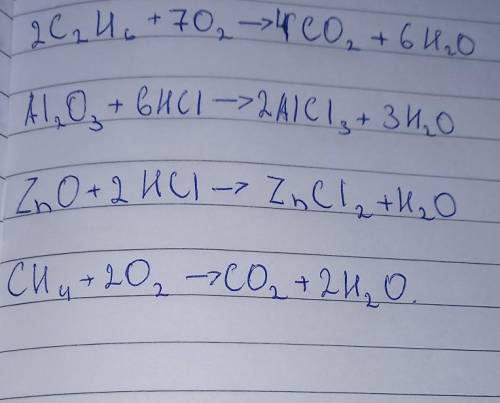 2C₂H₆ + 7O₂ → 4CO₂ + 6H₂O
Al₂O₃ + 6HCl → 2AlCl₃ + 3H₂O
ZnO + 2HCl → ZnCl₂ + H₂O
CH₄ + 2O₂ → CO₂ + 2H₂O.